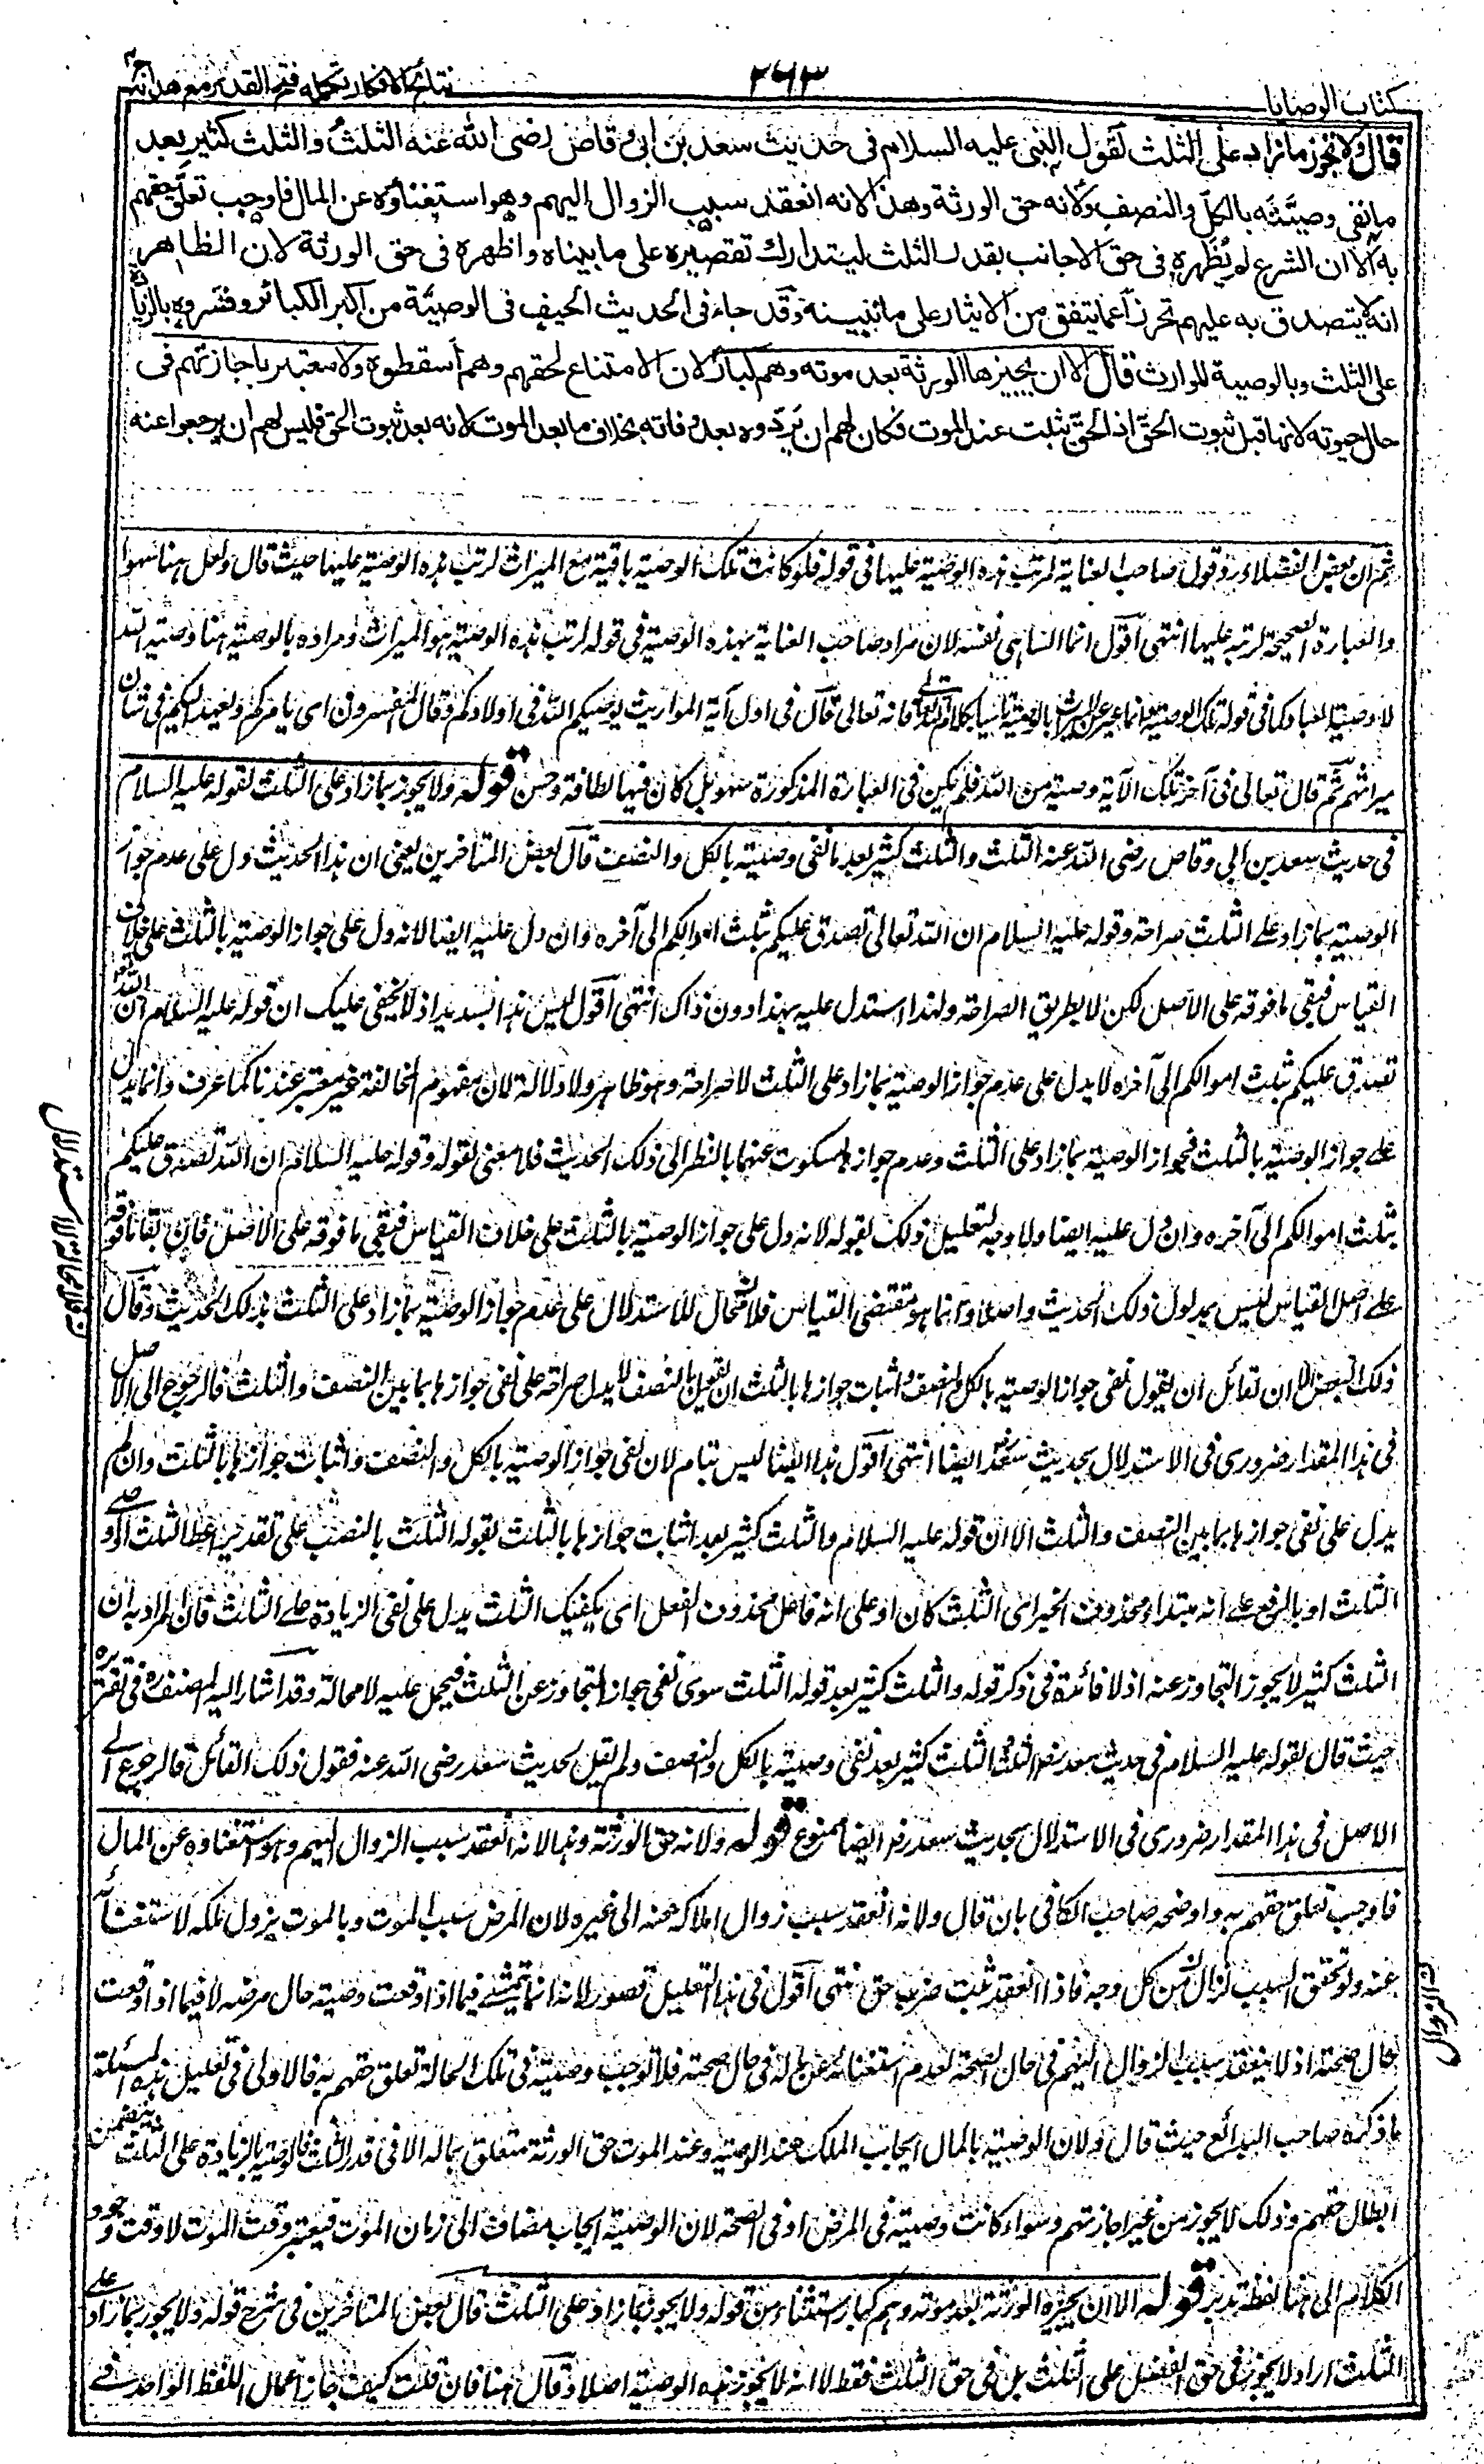 كتاب الوصايا
٣٦٣
نتائج الافكار تكمله فتح القدير مع هدايه
قال ولا تجوز ما زاد على الثلث لقول النبي عليه السلام في حديث سعد بن ابي وقاص رضى الله عنه الثلث والثلث كثير بعد
ما نفى وصيته بالكل والنصف ولانه حق الورثة وهذا لانه انعقد سبب الزوال اليهم وهو استغناؤه عن المال فاوجب تعلق حقهم
به الا ان الشرع لم يظهره في حق الاجانب بقدر الثلث ليتدارك تقصيره على ما بيناه واظهره في حق الورثة لان الظاهر
انه لا يتصدق به عليهم تحرزا عما يتفق من الايثار على ما نبينه وقد جاء في الحديث الحيف في الوصية من اكبر الكبائر وفسروه بالزيادة
على الثلث وبالوصية للوارث قال الا ان يجيزها الورثة بعد موته وهم كبار لان الامتناع لحقهم وهم اسقطوه ولا معتبر باجازتهم في
حال حيوته لانها قبل ثبوت الحق اذ الحق يثبت عند الموت فكان لهم ان يردوه بعد وفاته بخلاف ما بعد الموت لانه بعد ثبوت الحق فليس لهم ان يرجعوا عنه
ثم ان بعض الفضلاء رد قول صاحب العناية لم يترتب هذه الوصية عليها في قوله فلو كانت تلك الوصية باقية مع الميراث لرتب هذه الوصية عليها حيث قال ولعل ههنا سهوا
والعبارة الصحيحة لرتبه عليها انتهى اقول انما الساهي نفسه لان مراد صاحب العناية بهذه الوصية في قوله لرتب هذه الوصية هو الميراث ومراده بالوصية هنا وصية الله
لا وصية العباد كما في قوله تلك الوصية وانما عبر عن الميراث بالوصية تأسيا بكلام الله تعالى فانه تعالى قال في اول آية المواريث يوصيكم الله في اولادكم وقال المفسرون اى يامركم ويعهد اليكم في شان
ميراثهم ثم قال تعالى في آخر تلك الآية وصية من الله فلم يكن في العبارة المذكورة سهو بل كان فيها لطافة وحسن قوله ولا يجوز بما زاد على الثلث لقوله عليه السلام
في حديث سعد بن ابي وقاص رضي الله عنه الثلث والثلث كثير بعد ما نفى وصيته بالكل والنصف قال بعض المتاخرين يعنى ان هذا الحديث دل على عدم جواز
الوصية بما زاد على الثلث صراحة وقوله عليه السلام ان الله تعالى تصدق عليكم بثلث اموالكم الى آخره وان دل عليه ايضا لانه دل على جواز الوصية بالثلث على خلاف
القياس فبقى ما فوقه على الاصل لكن لا بطريق الصراحة ولهذا استدل عليه بهذا دون ذاك انتهى اقول ليس هذا بسديد اذ لا يخفى عليك ان قوله عليه السلام ان الله
تصدق عليكم بثلث اموالكم الى آخره لا يدل على عدم جواز الوصية بما زاد على الثلث لا صراحة وهو ظاهر ولا دلالة لان مفهوم المخالفة غير معتبر عندنا كما عرف وانما يدل
على جواز الوصية بالثلث فجواز الوصية بما زاد على الثلث وعدم جوازها مسكوت عنهما بالنظر الى ذلك الحديث فلا معنى لقوله وقوله عليه السلام ان الله تصدق عليكم
بثلث اموالكم الى آخره وان دل عليه ايضا ولا وجه لتعليل ذلك بقوله لانه دل على جواز الوصية بالثلث على خلاف القياس فبقى ما فوقه على الاصل فان بقاء ما فوقه
على اصل القياس ليس بمدلول ذلك الحديث واصلا وانما هو مقتضى القياس فلا مجال للاستدلال على عدم جواز الوصية بما زاد على الثلث بذلك الحديث وقال
ذلك البعض الا ان لقائل ان يقول نفى جواز الوصية بالكل والنصف واثبات جوازها بالثلث لا يدل صراحة على نفى جوازها بما بين النصف والثلث فالرجوع الى الاصل
في هذا المقدار ضروري في الاستدلال بحديث سعد ايضا انتهى اقول هذا ايضا ليس بتام لان نفى جواز الوصية بالكل والنصف واثبات جوازها بالثلث وان لم
يدل على نفى جوازها بما بين النصف والثلث الا ان قوله عليه السلام والثلث كثير بعد اثبات جوازها بالثلث بقوله الثلث بالنصب على تقدير اعط الثلث او
الثلث او بالرفع على انه مبتدأ محذوف الخبر اى الثلث كان او على انه فاعل محذوف الفعل اى يكفيك الثلث يدل على نفى الزيادة على الثلث فان المراد به ان
الثلث كثير لا يجوز التجاوز عنه اذ لا فائدة في ذكر قوله والثلث كثير بعد قوله الثلث سوى نفى جواز التجاوز عن الثلث فيحمل عليه لا محالة وقد اشار اليه المصنف في تقريره
حيث قال لقوله عليه السلام في حديث سعد الثلث والثلث كثير بعد نفى وصيته بالكل والنصف ولم يقل لحديث سعد رضي الله عنه فقول ذلك القائل فالرجوع الى
الاصل في هذا المقدار ضروري في الاستدلال بحديث سعد ايضا ممنوع قوله ولانه حق الورثة وهذا لانه انعقد سبب الزوال اليهم وهو استغناؤه عن المال
فاوجب تعلق حقهم به واوضحه صاحب الكافي بان قال ولانه انعقد سبب زوال املاكه عنه الى غيره لان المرض سبب الموت وبالموت يزول ملكه لاستغنائه
عنه ولو تحقق السبب لزال من كل وجه فاذا انعقد ثبت ضرب حق انتهى اقول في هذا التعليل قصور لانه انما يتمشى فيما اذا وقعت وصيته حال مرضه لا فيما اذا وقعت
حال صحته اذ لا ينعقد سبب الزوال اليهم في حال الصحة لعدم استغنائه عن ماله في حال صحته فلا توجب وصيته في تلك الحالة تعلق حقهم به فالاولى في تعليل هذه المسئلة
ما ذكره صاحب البدائع حيث قال ولان الوصية بالمال ايجاب الملك عند الموت وعند الموت حق الورثة متعلق بماله الا في قدر الثلث فالوصية بالزيادة على الثلث يتضمن
ابطال حقهم وذلك لا يجوز من غير اجازتهم وسواء كانت وصيته في المرض او في الصحة لان الوصية ايجاب مضاف الى زمان الموت فيعتبر وقت الموت لا وقت وجود
الكلام الى هنا لفظه تدبر قوله الا ان يجيزه الورثة بعد موته وهم كبار استثناء من قوله ولا يجوز بما زاد على الثلث قال بعض المتاخرين في شرح قوله ولا يجوز بما زاد على
الثلث اراد لا يجوز في حق الفضل على الثلث بل في حق الثلث فقط لا انه لا يجوز هذه الوصية اصلا وقال هنا فان قلت كيف جاز اعمال اللفظ الواحد في